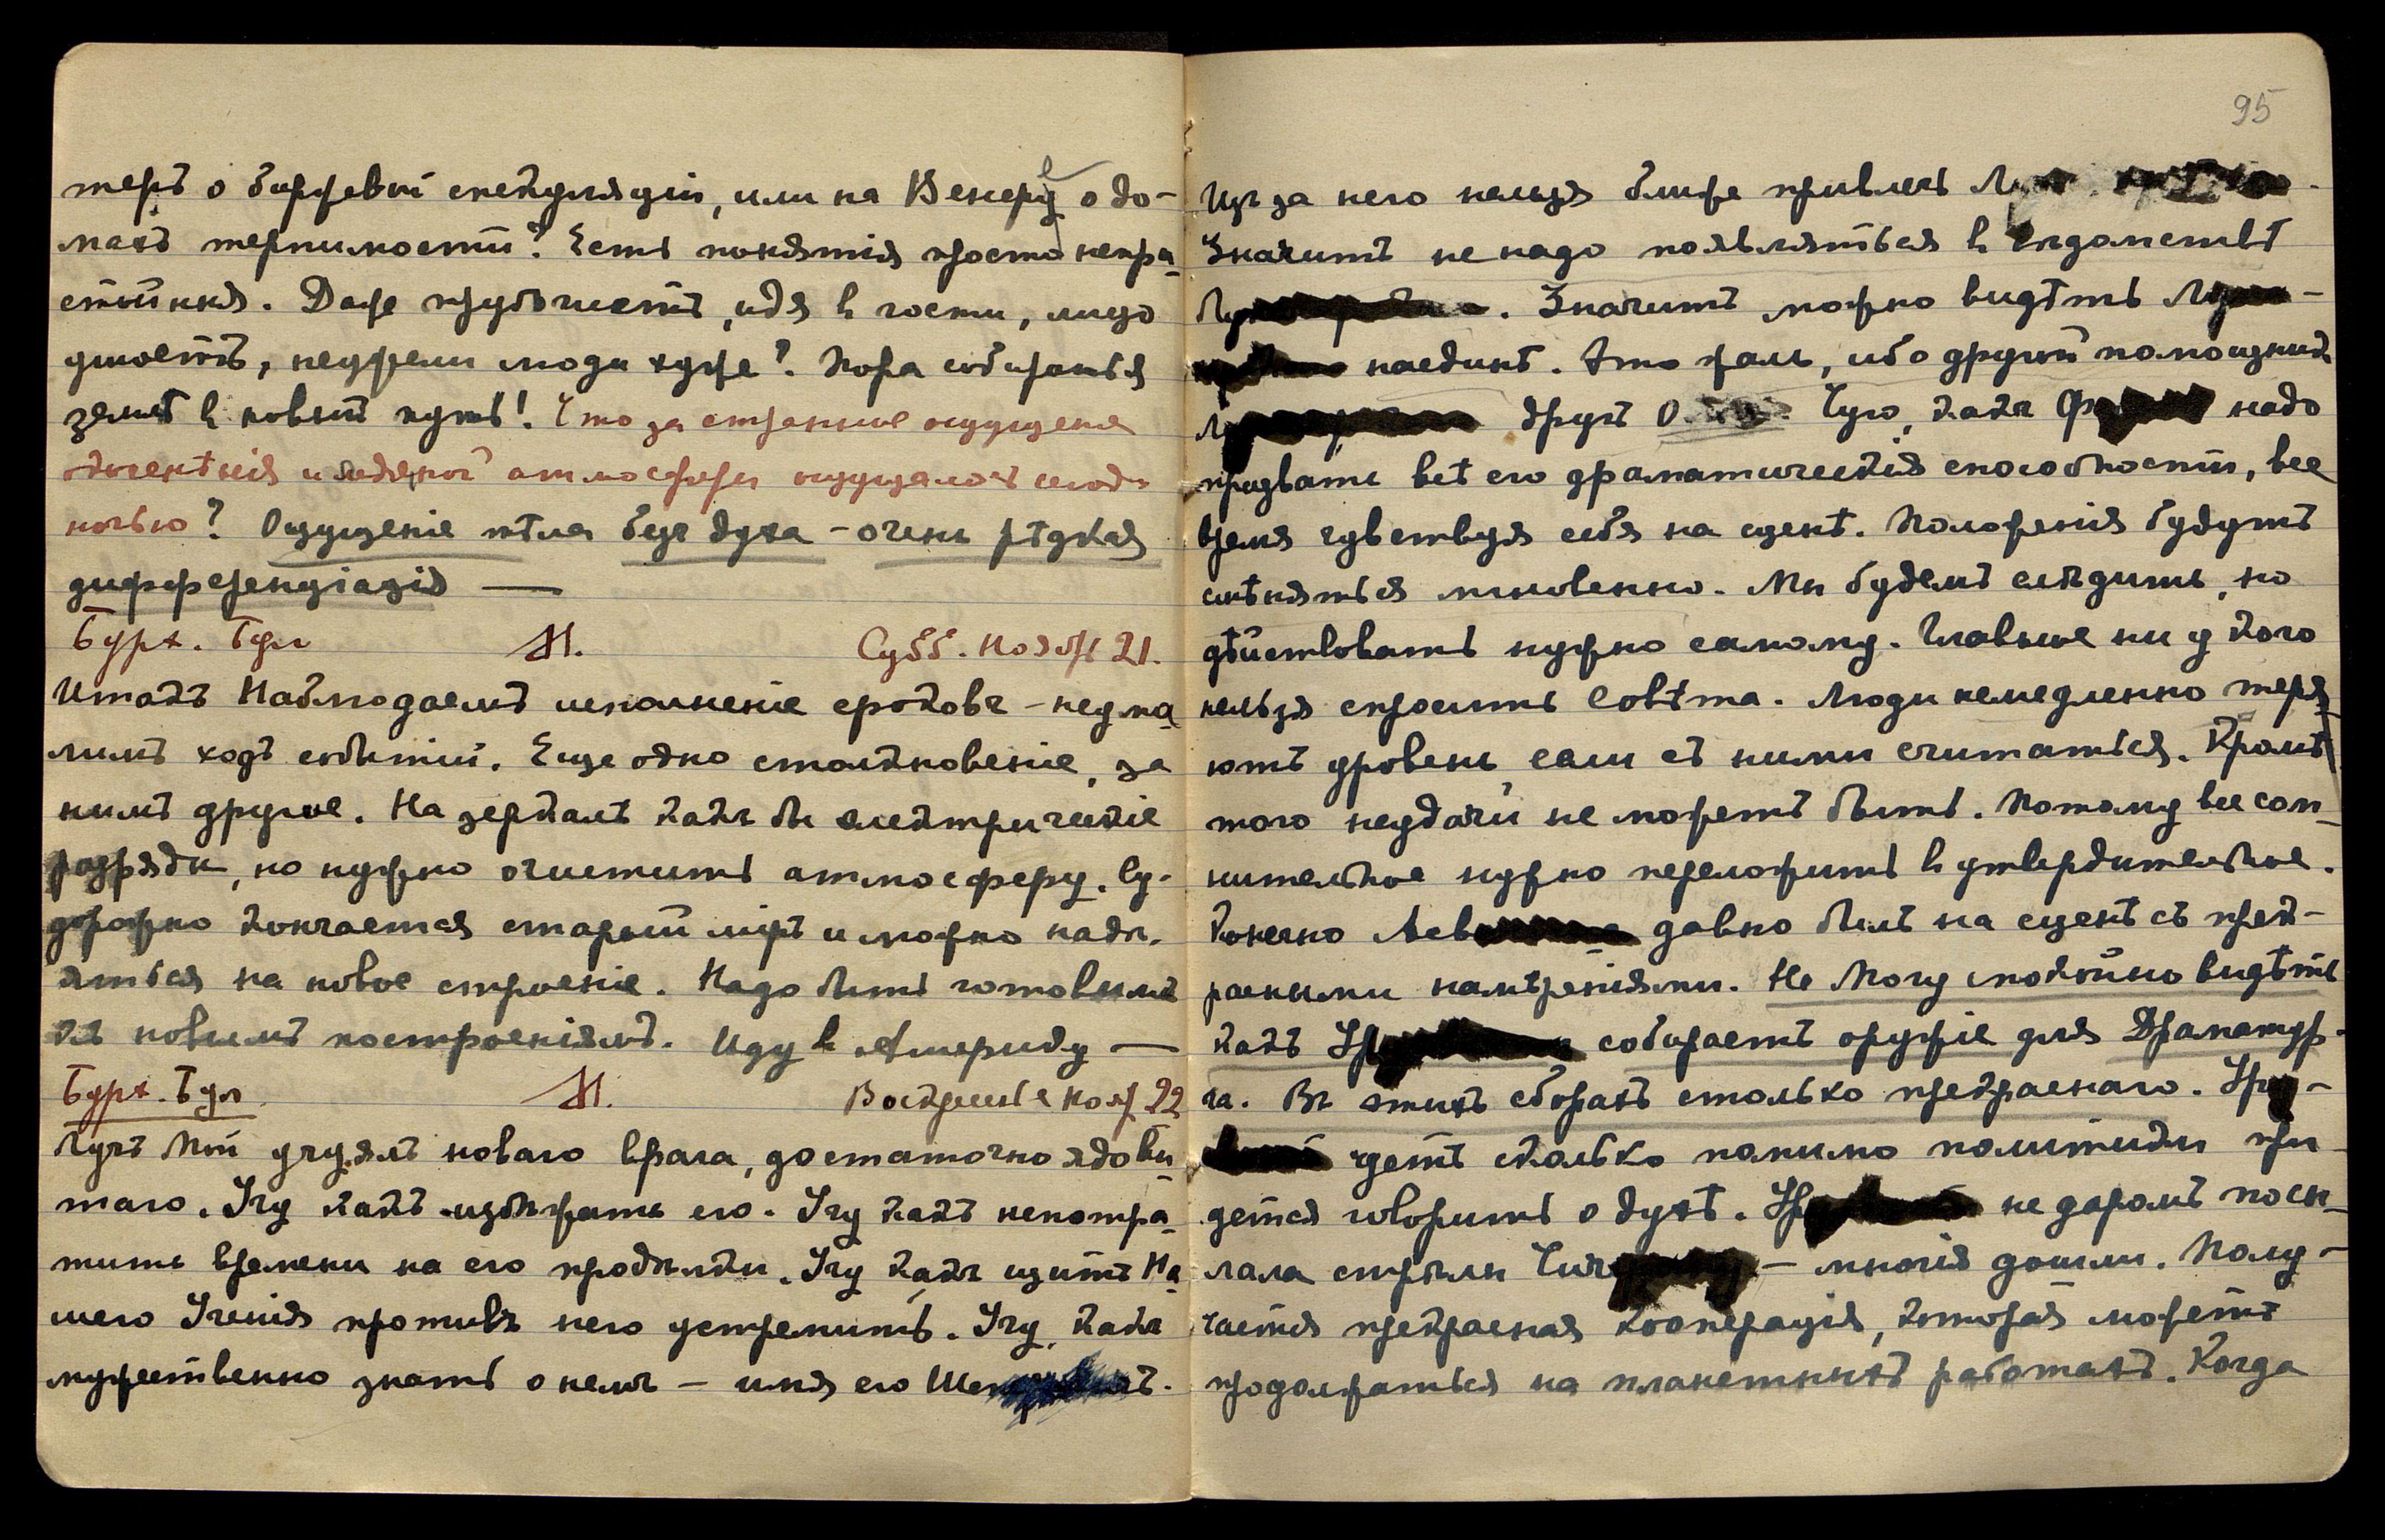 теръ о биржевой спекуляціи, или на Венеру о до-
махъ терпимости? Есть понятія просто непри
стойныя. Даже трубочистъ, идя в гости, лицо
умоетъ, неужели люди хуже? Пора собираться
землѣ в новый путь! Что за странное ощущеніе
одиченѣнія и ледяной атмосферы ощущалось сегодн
ночью? Ощущеніе тѣла безъ духа – очень рѣдкая
дифференціація —
Бурх. Бул М. Субб. Ноябрь 21.
Итакъ Наблюдаемъ исполненіе сроковъ – неума
лимъ ходъ событій. Еще одно столкновеніе, за
нимъ другое. На зеркалѣ какъ бы электрическіе
разряды, но нужно очистить атмосферу. Су-
дорожно кончается старый міръ и можно надѣ-
яться на новое строеніе. Надо быть готовымъ
къ новымъ построеніямъ. Иду в Америку —
Бурх. Бул М. Воскресенье Нояб 22
Лучъ Мой учуялъ новаго врага, достаточно ядови
таго. Учу какъ избѣжать его. Учу какъ непотра
тить времени на его продѣлки. Учу какъ щитъ На
шего Ученія противъ него устремить. Учу, какъ
мужественно знать о немъ – имя его Ше
95
Изъ за него нельзя ближе привлечь
Значитъ не надо появляться в вѣдомствѣ
Значитъ можно видѣть
наединѣ. Это жаль, ибо другой помощникъ
другъ О. Чую, какъ надо
призвать всѣ его драматическія способности, все
время чувствуя себя на сценѣ. Положенія будутъ
смѣняться мгновенно. Мы будемъ слѣдить, но
дѣйствовать нужно самому. Главное ни у кого
нельзя спросить совѣта. Люди немедленно теря
ютъ уровень если съ ними считаться. Кромѣ
того неудачи не можетъ быть. Потому все сом-
нительное нужно переложить в утвердительное.
Конечно давно былъ на сценѣ съ прек-
расными намѣреніями. Не Могу спокойно видѣть
какъ собираетъ оружіе для Драматур-
га. Въ этихъ сборахъ столько прекраснаго.
чуетъ сколько помимо политики при
дется говорить о духѣ. не даромъ посы-
лала стрѣлы – многія дошли. Полу-
чается прекрасная кооперація, которая можетъ
продолжаться на планетныхъ работахъ. Когда